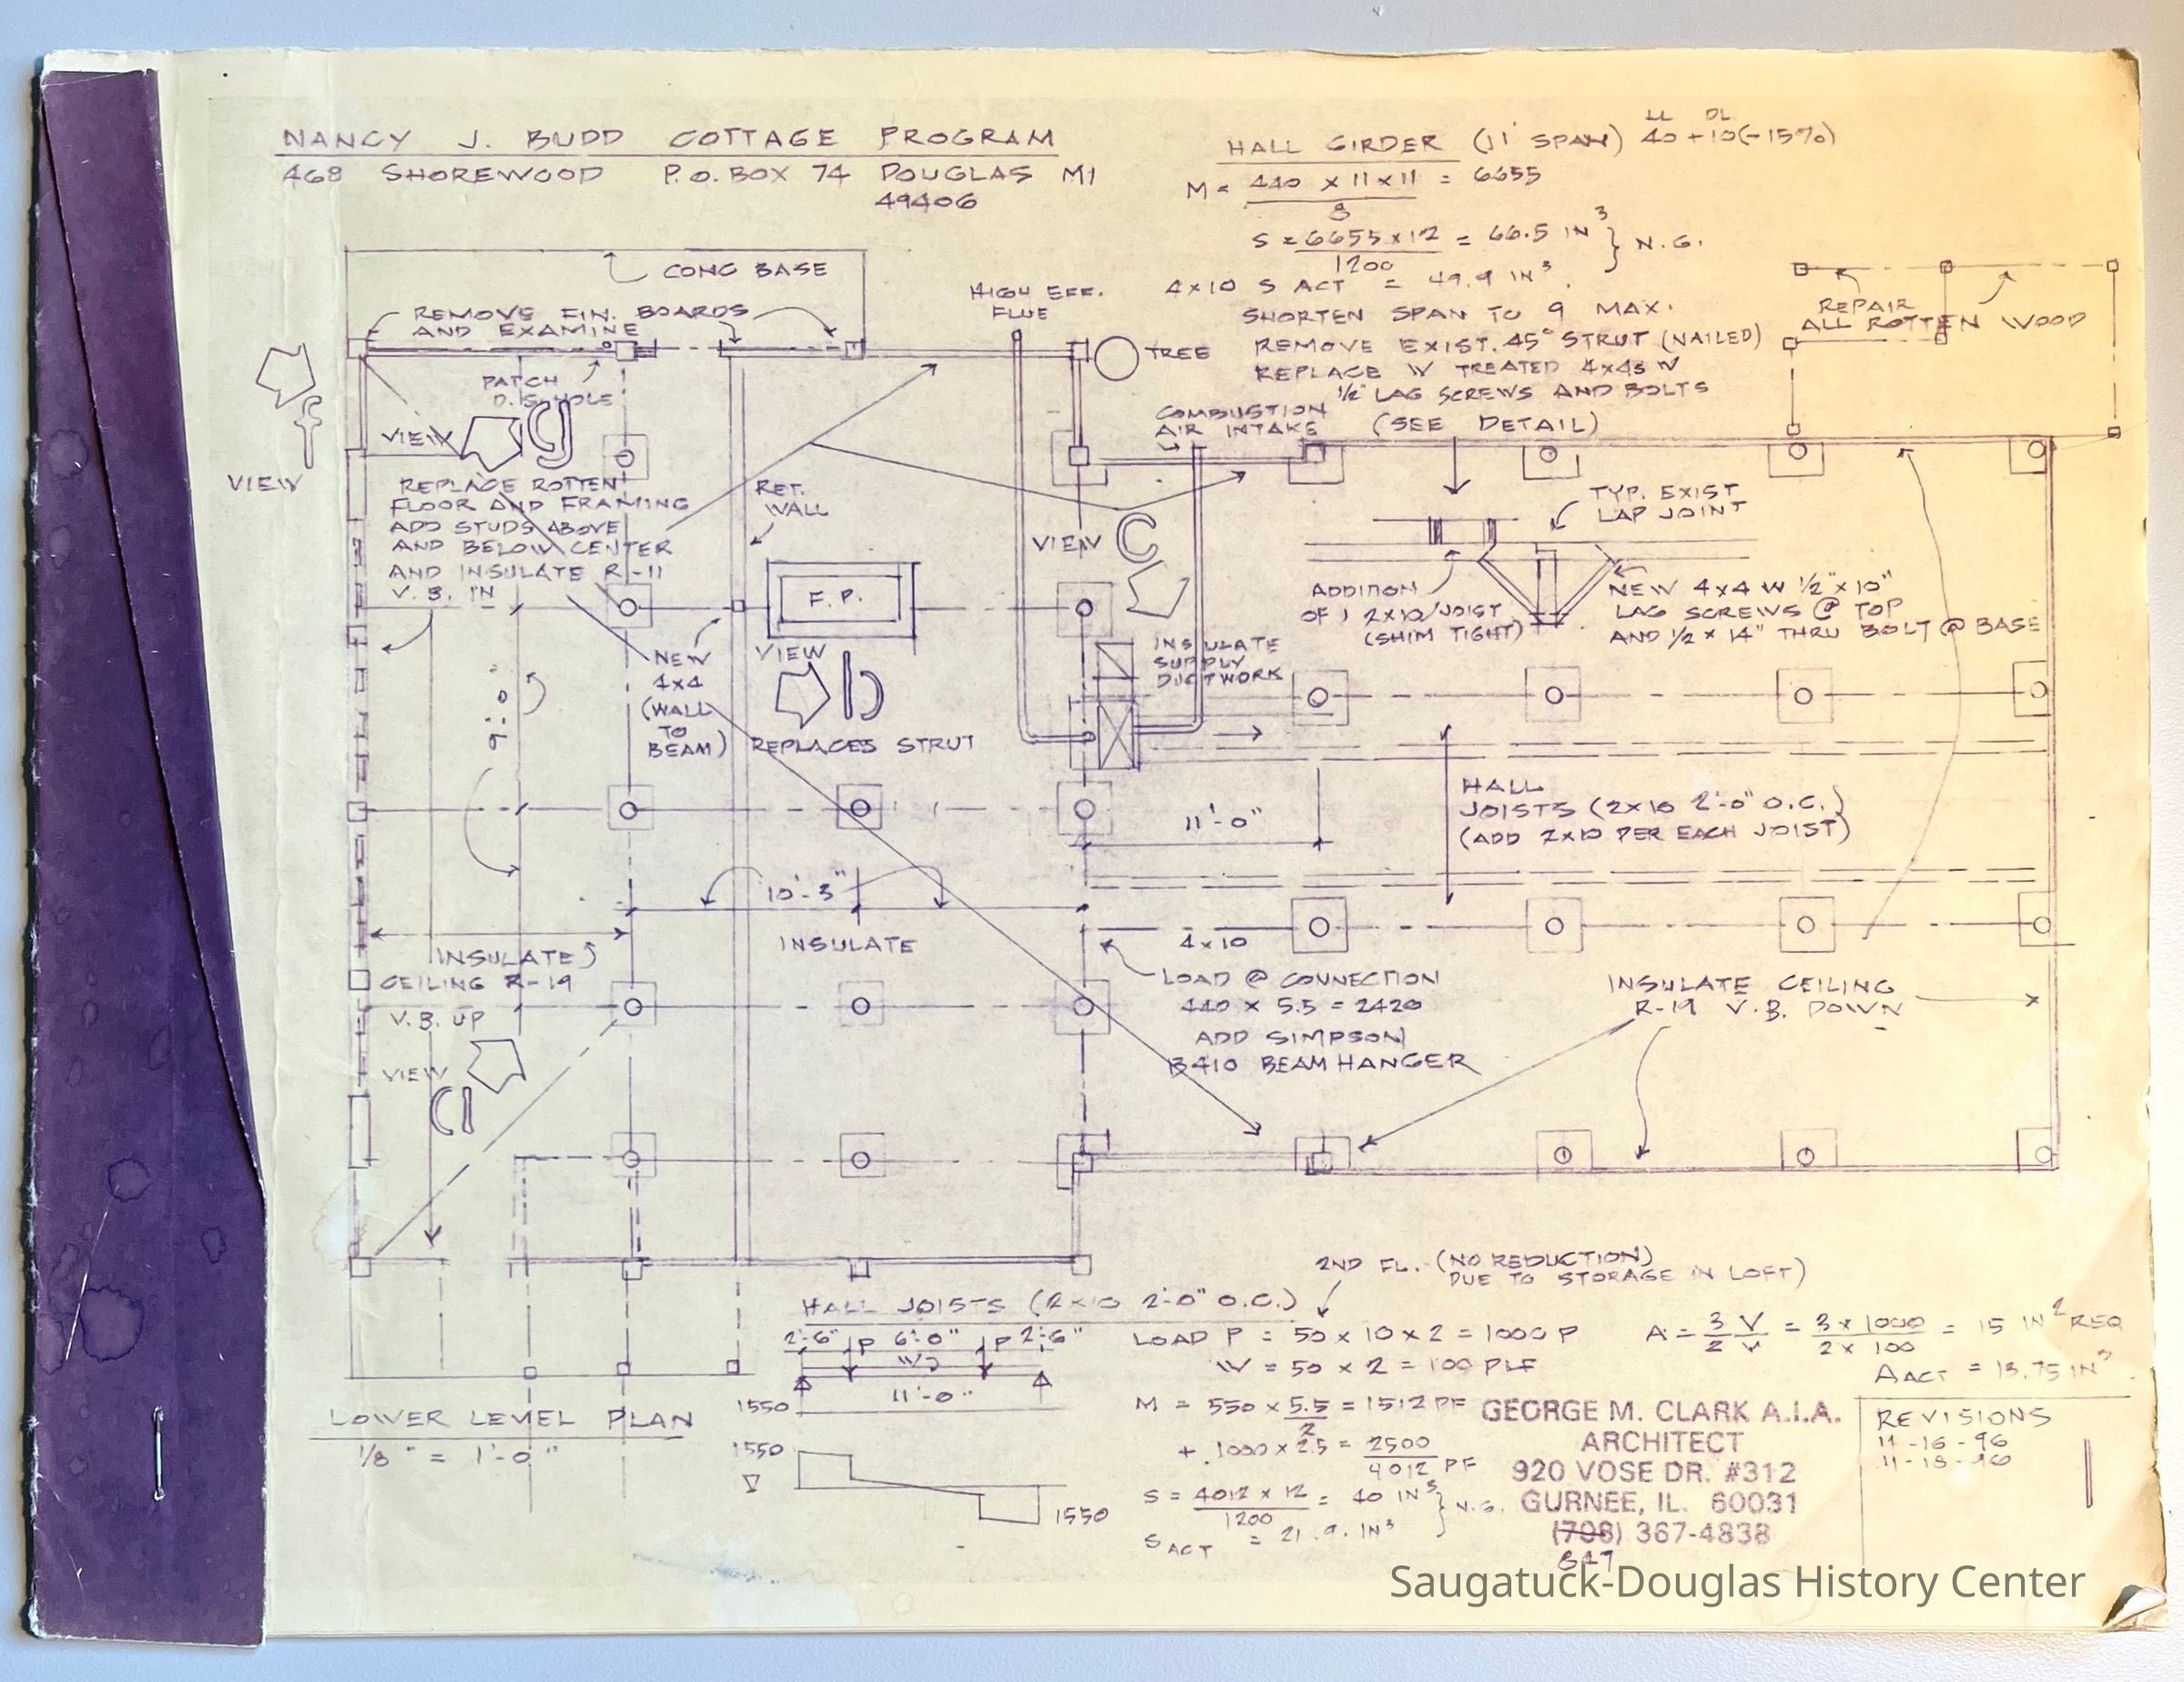 NANCY J. BUDD COTTAGE PROGRAM
468 SHOREWOOD P.O. BOX 74 DOUGLAS MI
49406
HALL GIRDER (11' SPAN) 40 + 10 (-15%)
LL DL
M = 440 x 11 x 11 = 6655
8
S = 6655 x 12 = 66.5 IN3 } N.G.
1200
4x10 S ACT = 49.9 IN3
SHORTEN SPAN TO 9 MAX.
REMOVE EXIST. 45° STRUT (NAILED)
REPLACE W TREATED 4x4s W
1/2" LAG SCREWS AND BOLTS
(SEE DETAIL)
CONC BASE
REMOVE FIN. BOARDS
AND EXAMINE
HIGH EFF.
FLUE
TREE
REPAIR
ALL ROTTEN WOOD
PATCH
D.S. HOLE
COMBUSTION
AIR INTAKE
VIEW f
VIEW g
REPLACE ROTTEN
FLOOR AND FRAMING
ADD STUDS ABOVE
AND BELOW CENTER
AND INSULATE R-11
V.B. IN
RET.
WALL
VIEW C
TYP. EXIST
LAP JOINT
F.P.
ADDITION
OF 1 2x10/JOIST
(SHIM TIGHT)
NEW 4x4 W 1/2" x 10"
LAG SCREWS @ TOP
AND 1/2 x 14" THRU BOLT @ BASE
NEW
4x4
(WALL
TO
BEAM)
VIEW b
REPLACES STRUT
INSULATE
SUPPLY
DUCTWORK
9'-0"
11'-0"
HALL
JOISTS (2x10 2'-0" O.C.)
(ADD 2x10 PER EACH JOIST)
10'-3"
INSULATE
INSULATE
CEILING R-19
V.B. UP
4x10
LOAD @ CONNECTION
440 x 5.5 = 2420
ADD SIMPSON
B410 BEAM HANGER
INSULATE CEILING
R-19 V.B. DOWN
VIEW a
2ND FL. (NO REDUCTION)
DUE TO STORAGE IN LOFT)
HALL JOISTS (2x10 2'-0" O.C.)
2'-6" P 6'-0" P 2'-6"
11'-0"
1550
LOAD P = 50 x 10 x 2 = 1000 P
W = 50 x 2 = 100 PLF
A = 3 V = 3 x 1000 = 15 IN2 REQ
2 V 2 x 100
A ACT = 13.75 IN2
M = 550 x 5.5 = 1512 PF
2
+ 1000 x 2.5 = 2500
4012 PF
S = 4012 x 12 = 40 IN3 } N.G.
1200
S ACT = 21.9 IN3
1550
V
1550
LOWER LEVEL PLAN
1/8" = 1'-0"
GEORGE M. CLARK A.I.A.
ARCHITECT
920 VOSE DR. #312
GURNEE, IL. 60031
(708) 367-4838
847
REVISIONS
11-16-96
11-18-96
Saugatuck-Douglas History Center